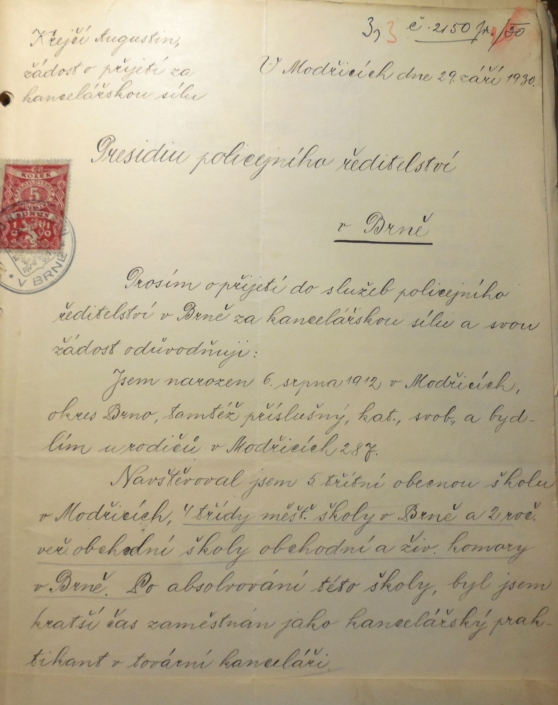 3, 3 č. 2150 Jr./30
Krejčí Augustin,
žádost o přijetí za
kancelářskou sílu
V Modřicích dne 29. září 1930.
Presidiu policejního ředitelství
v Brně
KOLEK
5
V BRNĚ
Prosím o přijetí do služeb policejního
ředitelství v Brně za kancelářskou sílu a svou
žádost odůvodňuji:
Jsem narozen 6. srpna 1912 v Modřicích,
okres Brno, tamtéž příslušný, kat., svob., a byd-
lím u rodičů v Modřicích 287.
Navštěvoval jsem 5 třítní obecnou školu
v Modřicích, 4 třídy měšť. školy v Brně a 2 roč.
veř. obchodní školy obchodní a živ. komory
v Brně. Po absolvování této školy, byl jsem
kratší čas zaměstnán jako kancelářský prak-
tikant v tovární kanceláři.